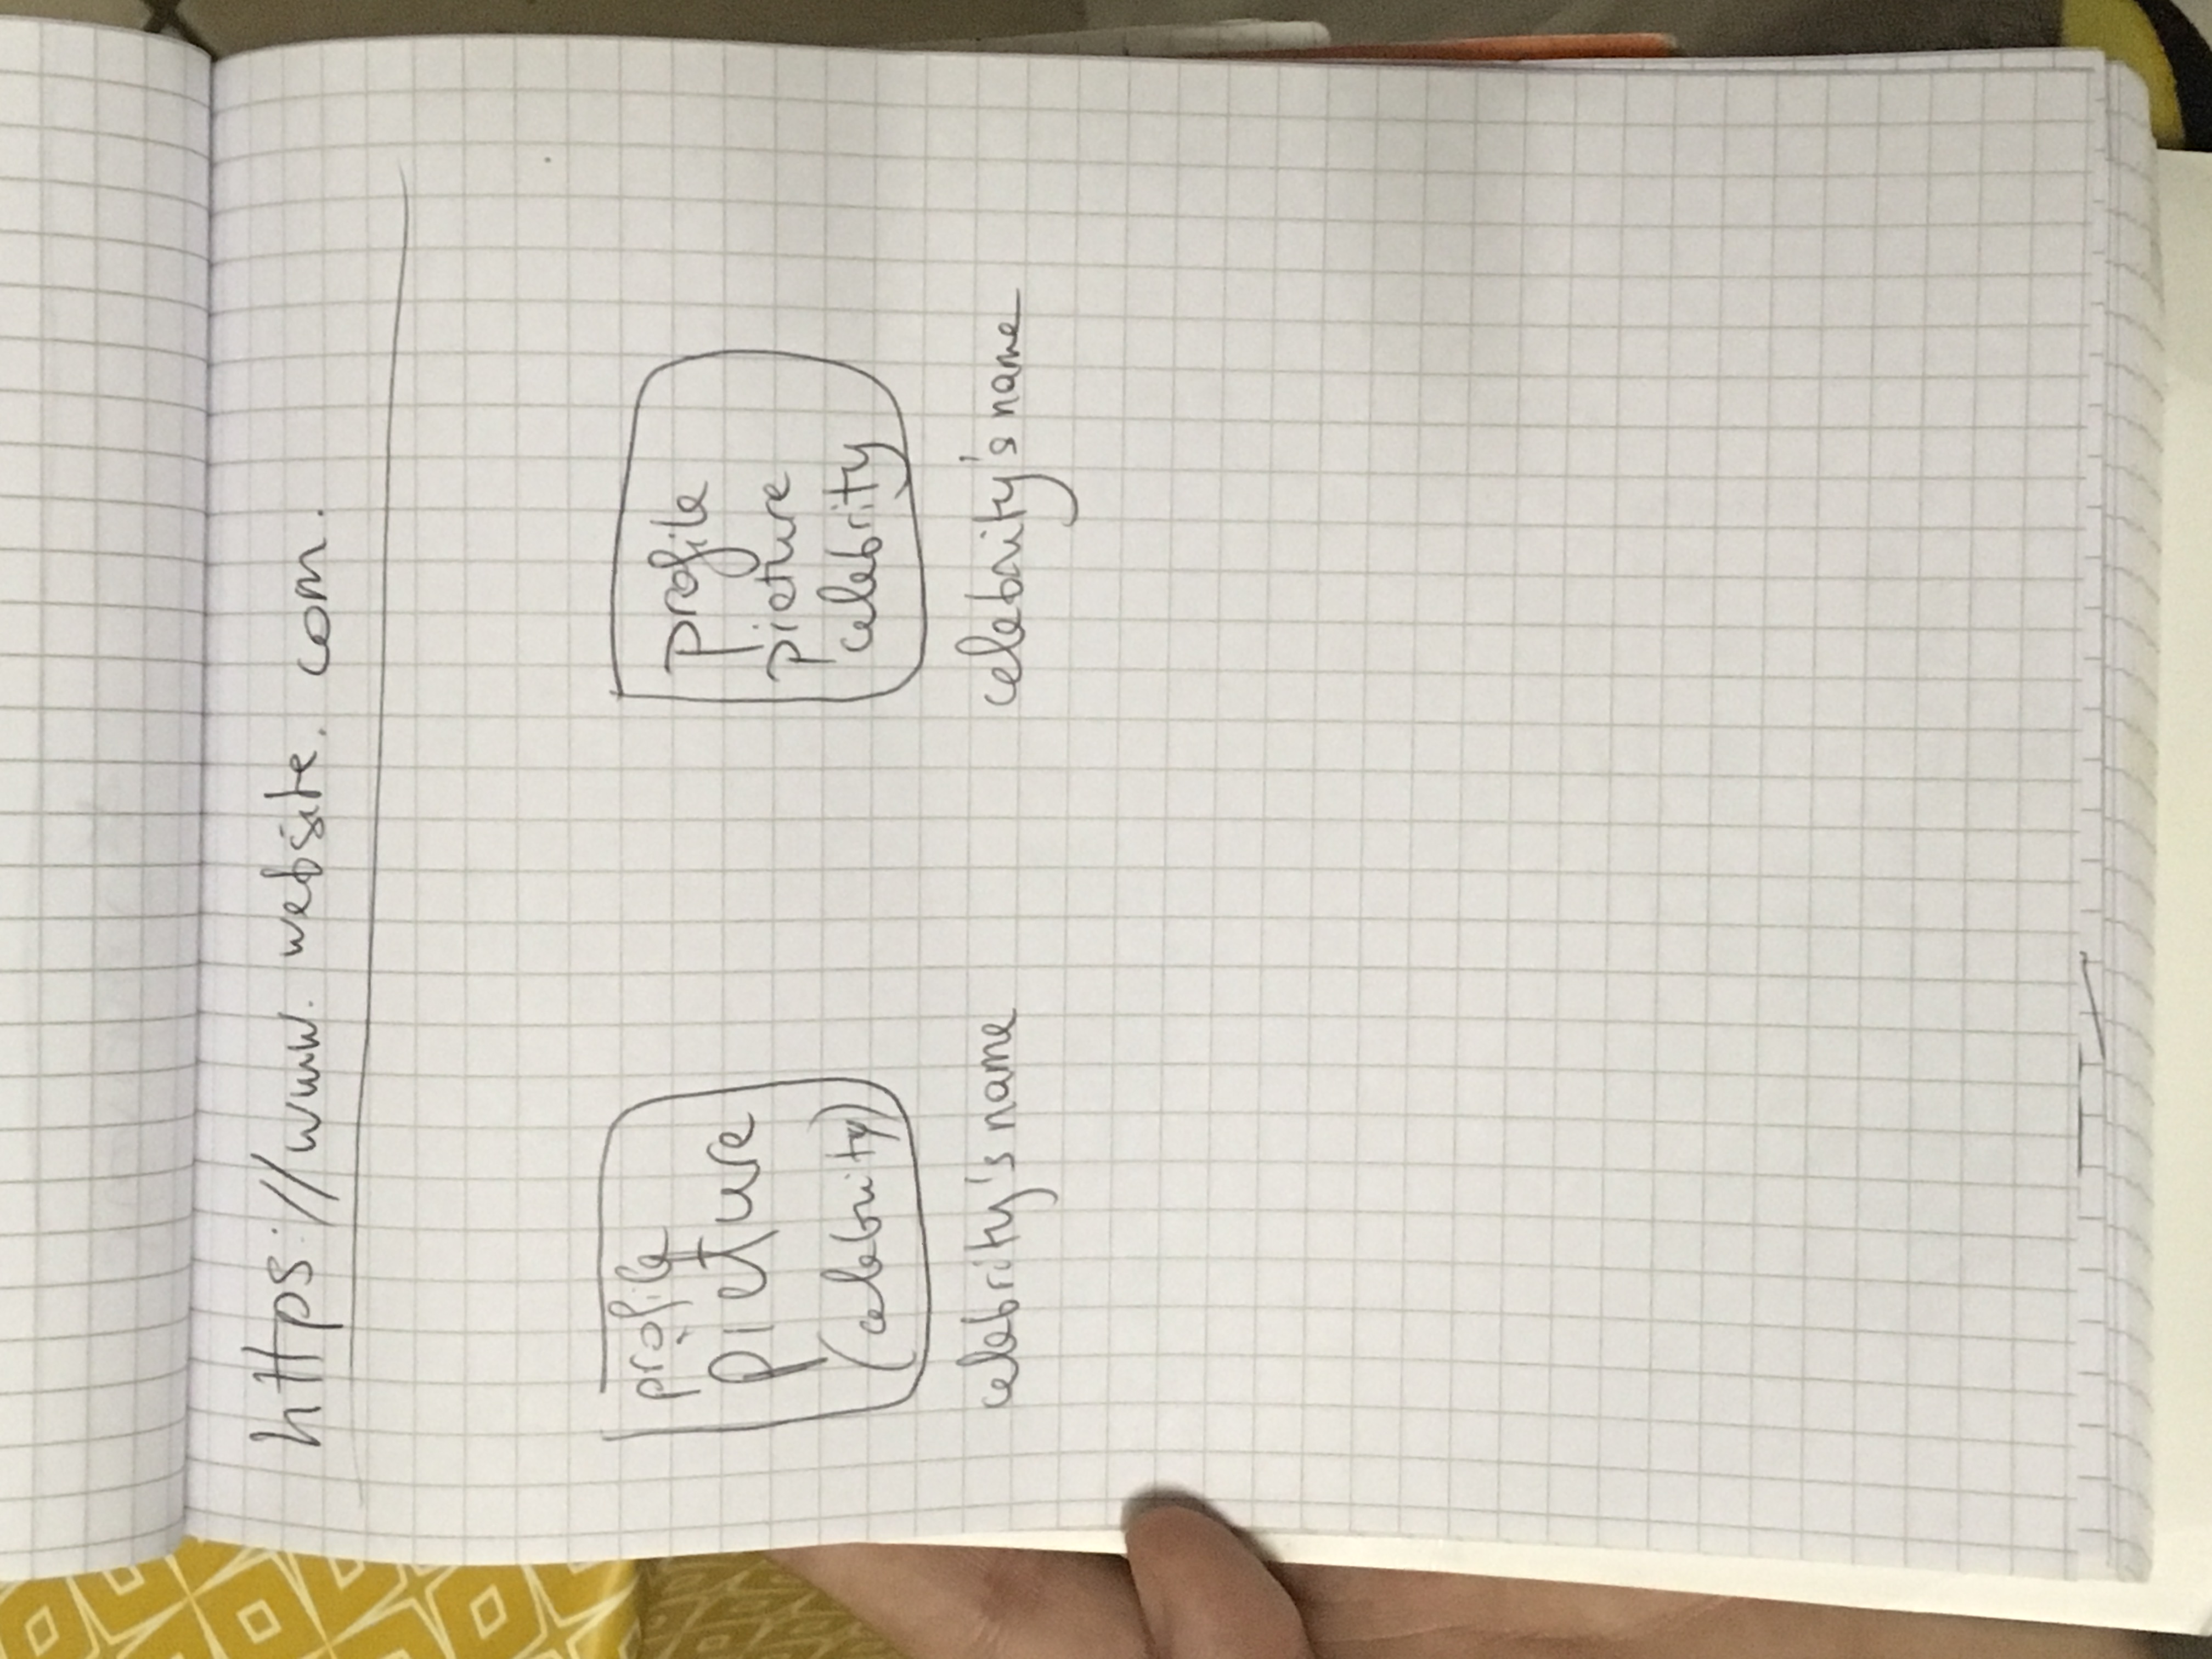 https://www.website.com.
profile
picture
(celebrity)
celebrity's name
profile
picture
celebrity
celebrity's name